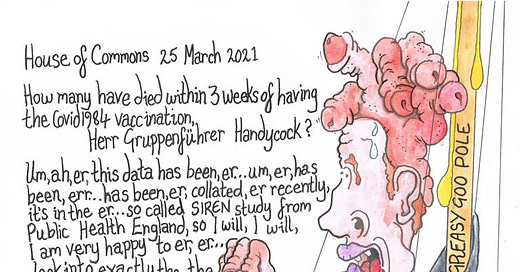 House of Commons 25 March 2021
How many have died within 3 weeks of having
the Covid1984 vaccination,
Herr Gruppenführer Handycock?
Um, ah, er, this data has been, er...um, er, has
been, err...has been, er, collated, er recently,
it's in the er...so called SIREN study from
Public Health England, so I will, I will,
I am very happy to er, er...
look into exactly the, the
GREASY GOO POLE